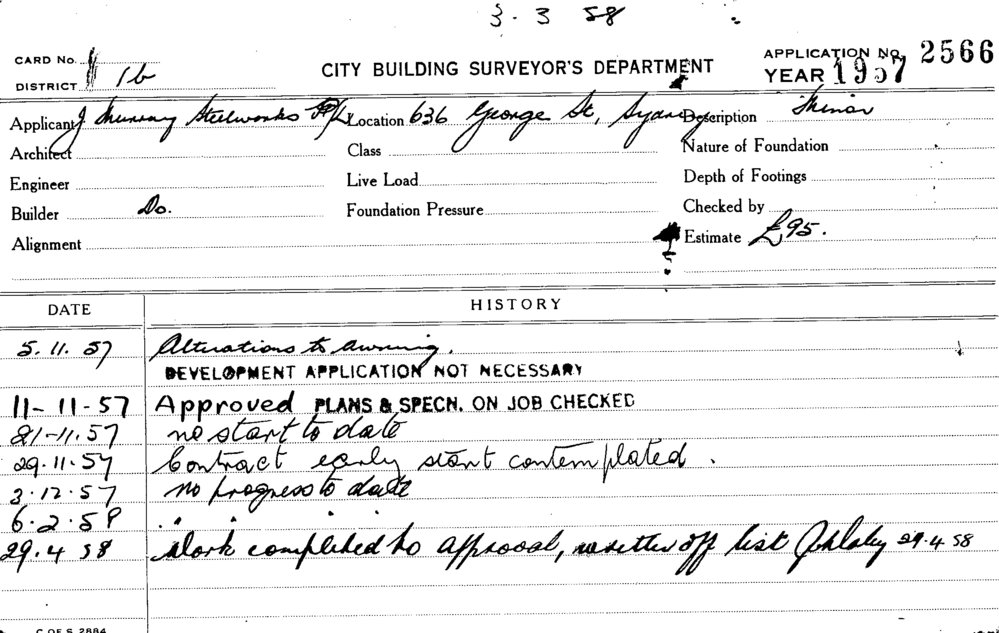 3.3 58
CARD No.
APPLICATION No. 2566
DISTRICT 1b
CITY BUILDING SURVEYOR'S DEPARTMENT
YEAR 1957
Applicant J Murray Steelworks P/L Location 636 George St, Sydney Description Minor
Architect Class Nature of Foundation
Engineer Live Load Depth of Footings
Builder Do. Foundation Pressure Checked by
Alignment Estimate £95.
DATE HISTORY
5.11.57 Alterations to awning.
DEVELOPMENT APPLICATION NOT NECESSARY
11-11-57 Approved PLANS & SPECN. ON JOB CHECKED
21-11.57 no start to date
29.11.57 Contract early start contemplated.
3.12.57 no progress to date
6.2.58 " " "
29.4 58 Work completed to approval, written off list 29.4 58
C OF S 2884